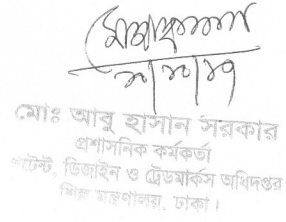 মোঃ আবু হাসান সরকার
প্রশাসনিক কর্মকর্তা
পেটেন্ট, ডিজাইন ও ট্রেডমার্কস অধিদপ্তর
শিল্প মন্ত্রণালয়, ঢাকা।